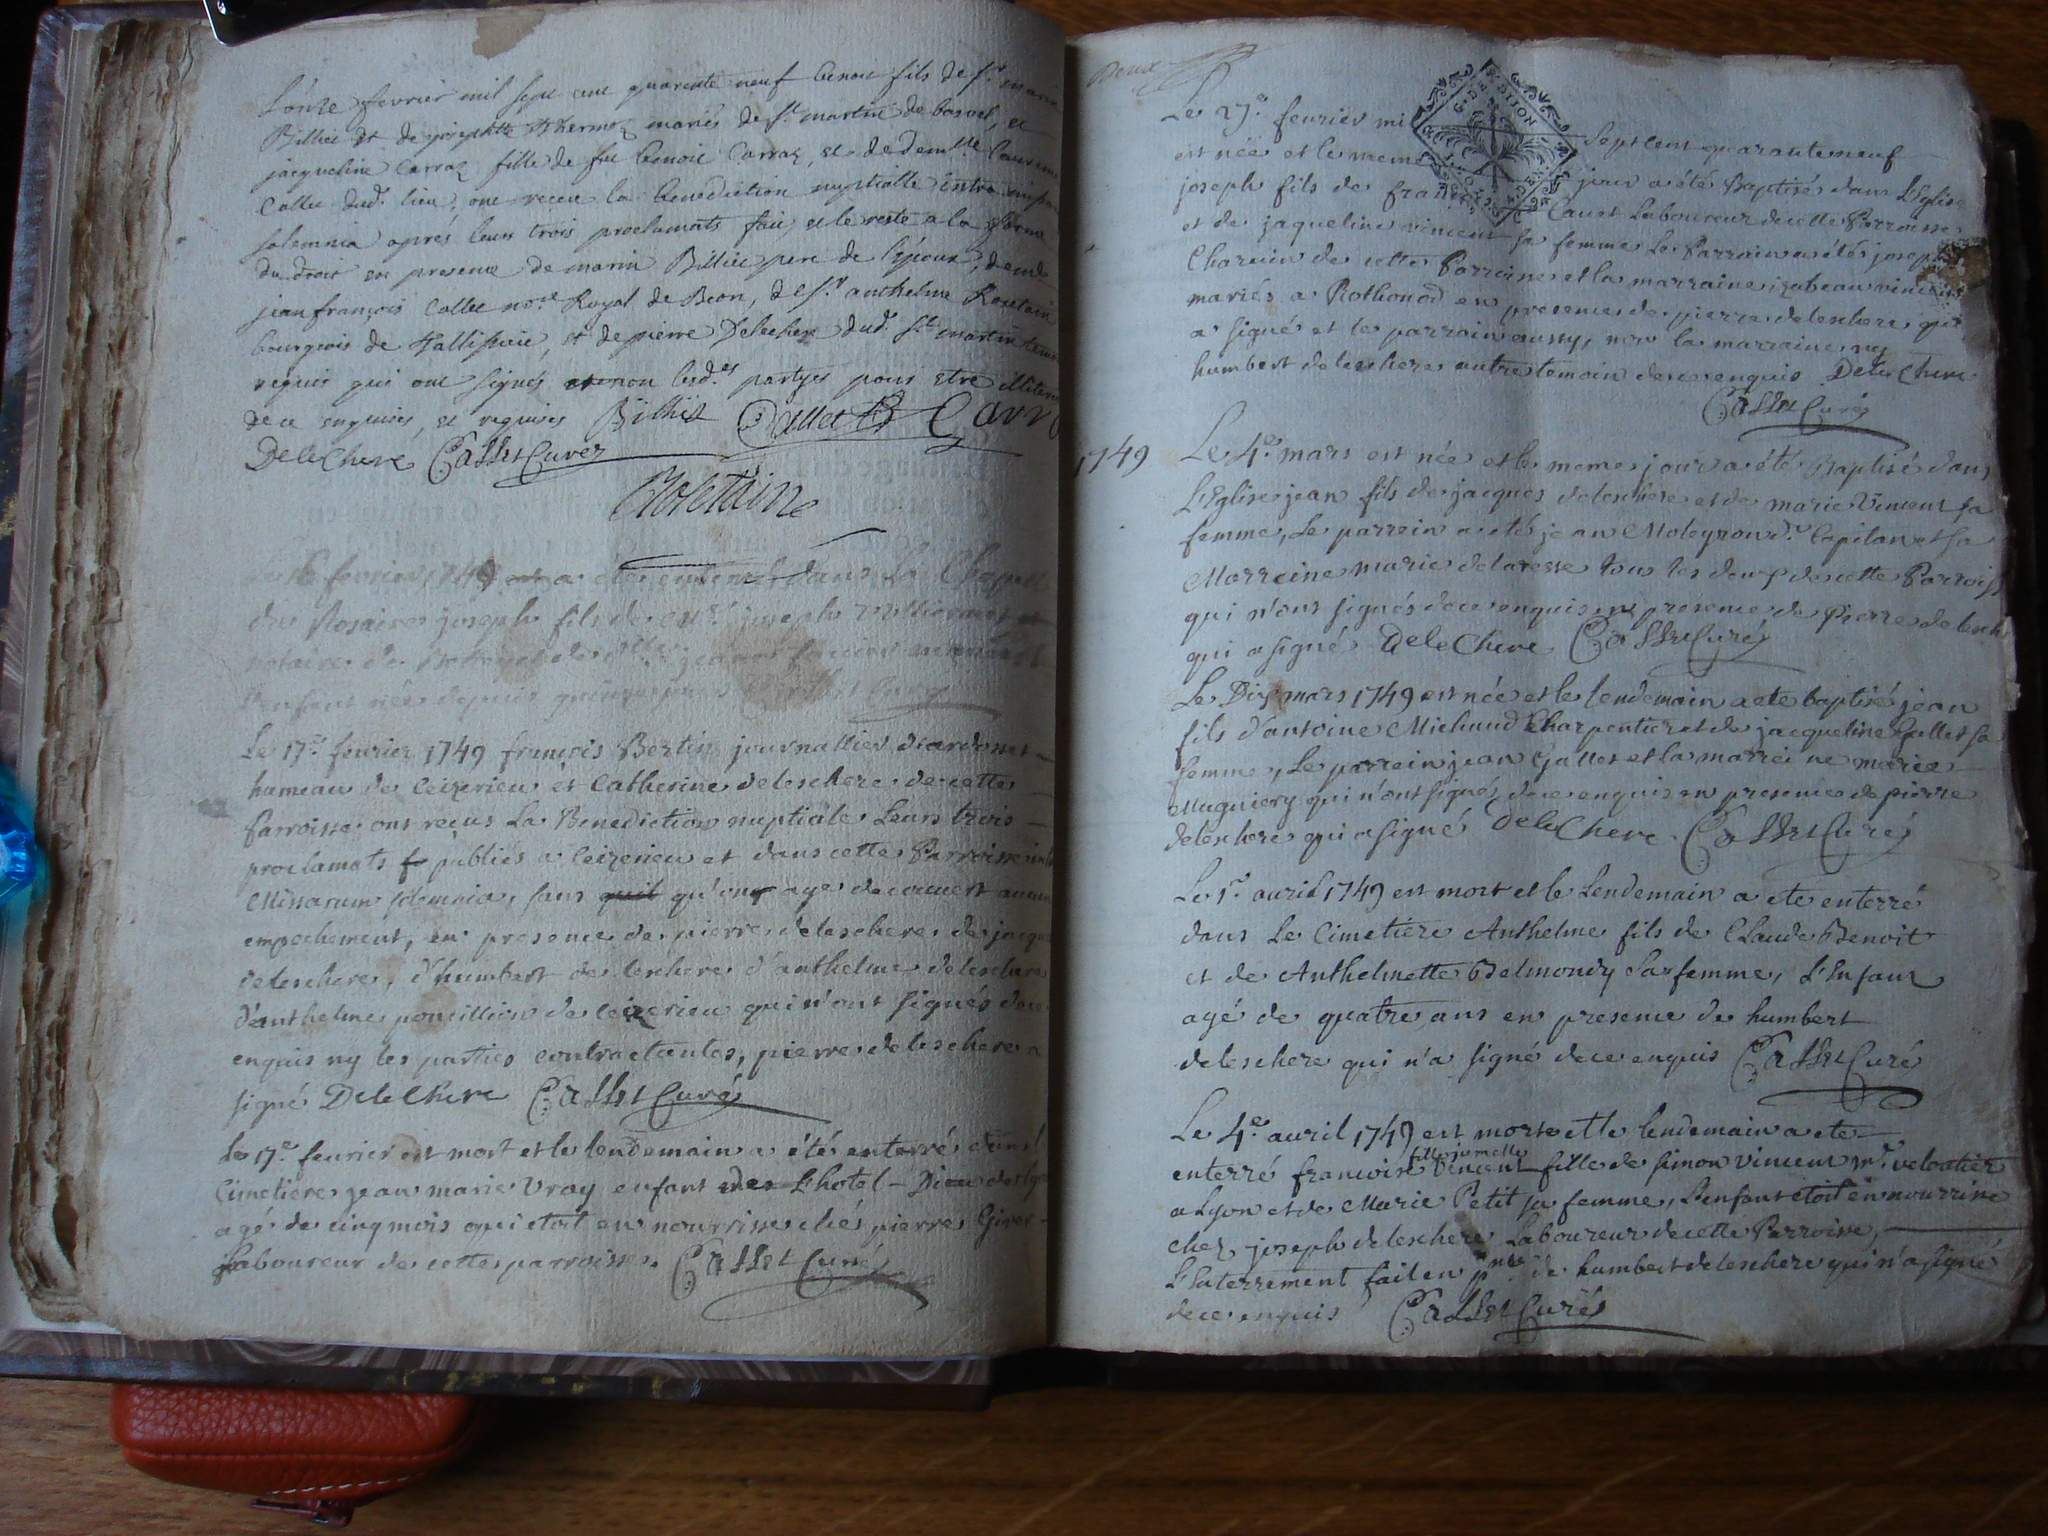 L'onze fevrier mil sept cent quarente neuf benoit fils de Sr. marin
Billiet et de josephtte Thermoz mariés de St. martin de bavel, et
jacqueline Carraz fille de feu benoit Carraz, et de demlle Laurence
Callet dud. lieu, ont receu la benediction nuptialle intra missarum
solemnia aprés leurs trois proclamats fait, et le reste a la forme
du droit en presence de marin Billiet pere de l'époux, de
jean françois Callet nore. Royal de Beon, de Sr. anthelme Roulain
bourgeois de Tallissieu, et de pierre Delechere dud. St. martin
requis qui ont signés et non lesd.es partyes pour etre
de ce enquises, et requises Billiet Callet Carra
Delechere Casset Curez
Le 16 fevrier 1749 a été enterré dans la Chapelle
du Rosaire joseph fils de joseph
notaire de
l'enfant née depuis quinze jours Casset Curé
Le 17e. fevrier 1749 françois Bertin journallier d'ardosset
hameau de Ceizerieu et Catherine deleschere de cette
Parroisse ont reçus La Benediction nuptiale Leurs trois
proclamats publiés a Ceizerieu et dans cette Parroisse
Missarum solemnia, sans quil qu'ony aye decouvert aucun
empechement, en presence de pierre deleschere de jacque
deleschere, d'humbert deleschere d'anthelme deleschere
d'anthelme poncillion de Ceizerieu qui n'ont signés de ce
enquis ny les parties contractantes, pierre deleschere a
signé Delechere Casset Curé
Le 17e. feurier est mort et le lendemain a été enterré dans le
Cimetiere jean marie Vray enfant de L'hotel-Dieu de
agé de cinq mois qui etoit en nourrisse chés pierre
Laboureur de cette parroisse. Casset Curé
Deux
Le 27e. feurier mi sept cent quarante neuf
est née et le meme jour a été Baptisé dans l'Eglise
joseph fils de françois Caust Laboureur de cette Parroisse
et de jaqueline vincent sa femme Le Parrain a étés joseph
Charcin de cette Parroisse et la marraine izabeau vincent
mariés a Rothonod en presence de pierre deleschere qui
a signé et le parrain aussy, non la marraine ny
humbert deleschere autre temoin de ce enquis Delechere
Casset Curé
1749 Le 4e. mars est née et le meme jour a été Baptisé dans
L'Eglise jean fils de jacques deleschere et de marie Vincent sa
femme, Le parrein a été jean Moleyron dt. Capitan et la
Marreine marie delavesse tous les deux de cette Parroisse
qui n'ont signés de ce enquis en presence de Pierre delesch
qui a signé Delechere Casset Curé
Le Dix mars 1749 est née et le lendemain a ete baptisé jean
fils d'antoine Michaud Charpentier et de jacqueline Gallet sa
femme, Le parrein jean Gallet et la marreine marie
Muguiery qui n'ont signés de ce enquis en presence de pierre
deleschere qui a signé Delechere Casset Curé
Le 1er. auril 1749 est mort et le Lendemain a ete enterré
dans Le Cimetiere Anthelme fils de Claude Benoit
et de Anthelmette Belmondy Sa femme, L'Enfant
agé de quatre ans en presence de humbert
deleschere qui n'a signé de ce enquis Casset Curé
Le 4e. auril 1749 est morte et le lendemain a ete
enterré francoise fille jumelle Vincent fille de simon vincent mr. veloutier
a Lyon et de Marie Petit sa femme, L'enfant etoit en nourrisse
chez joseph deleschere Laboureur de cette Parroisse,
L'Enterrement fait en pnce de humbert deleschere qui n'a signé
de ce enquis Casset Curé